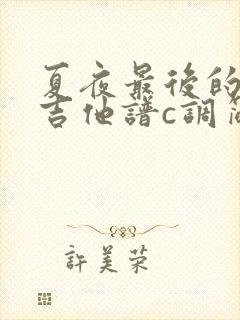 夏夜最後的
吉他譜c調
許美榮